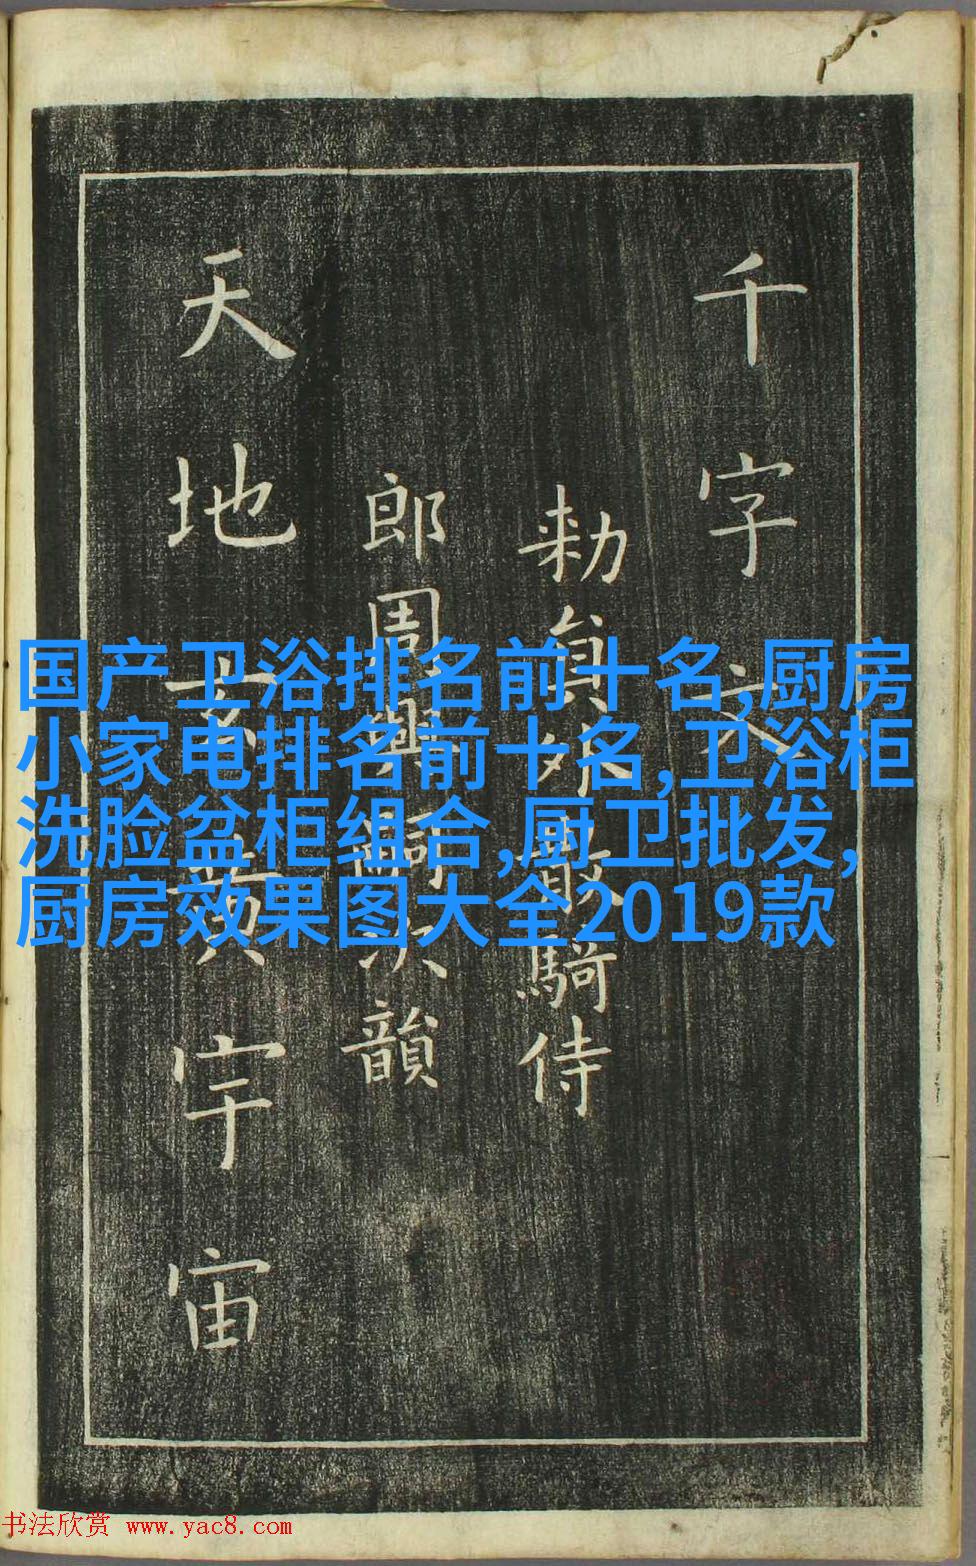 千字文
勅員外散騎侍
郎周興嗣次韻
天地玄黃宇宙
国产卫浴排名前十名,厨房
小家电排名前十名,卫浴柜
洗脸盆柜组合,厨卫批发,
厨房效果图大全2019款
书法欣赏 www.yac8.com